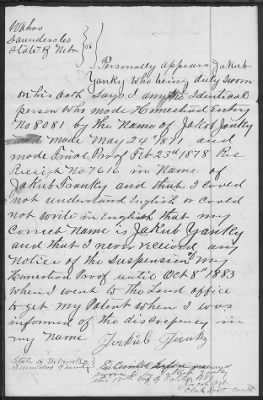 Wahoo
Saunders Co
State of Nebr } ss
Personally appears Jakub
Yanky who being duly sworn
on his oath says I am the Identical
person who made Homestead Entry
No 8081 by the Name of Jakob Janky
made May 24th 1871 and
made Final Proof Feb 23d 1878 Rec
Receipt No 7616 in Name of
Jakub and that I could
not understand English or could
not write in English that my
correct Name is Jakub Yanky
and that I never received any
Notice of the Suspension of my
Homestead Proof until Oct 8th 1883
when I went to the Land office
to get my Patent when I was
informed of the discrepency in
my Name Jakub Janky
State of Nebraska
Saunders County
Subscribed
sworn to by Jakub Yanky
this